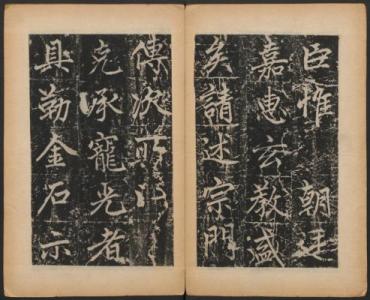 臣惟 朝廷
嘉惠玄教盛
矣請述宗門
傳次所以
克承寵光者
具勒金石示